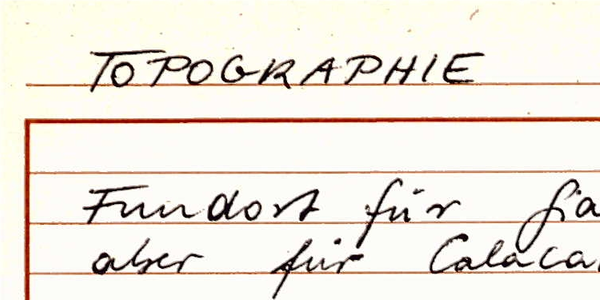 TOPOGRAPHIE
Fundort für
aber für